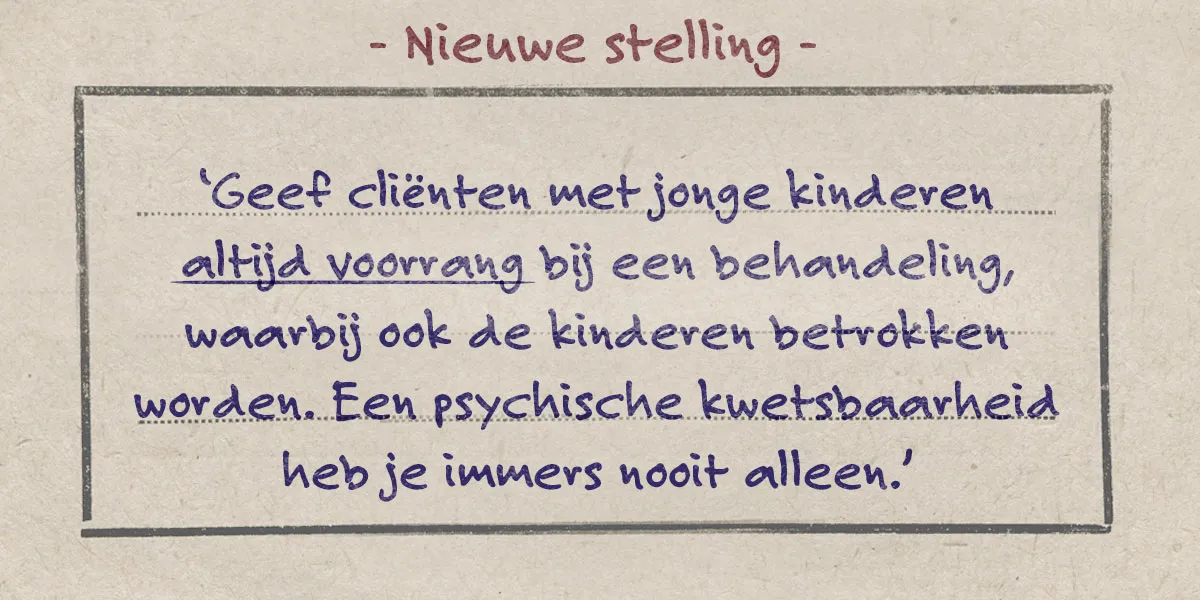 - Nieuwe stelling -
‘Geef cliënten met jonge kinderen
altijd voorrang bij een behandeling,
waarbij ook de kinderen betrokken
worden. Een psychische kwetsbaarheid
heb je immers nooit alleen.’